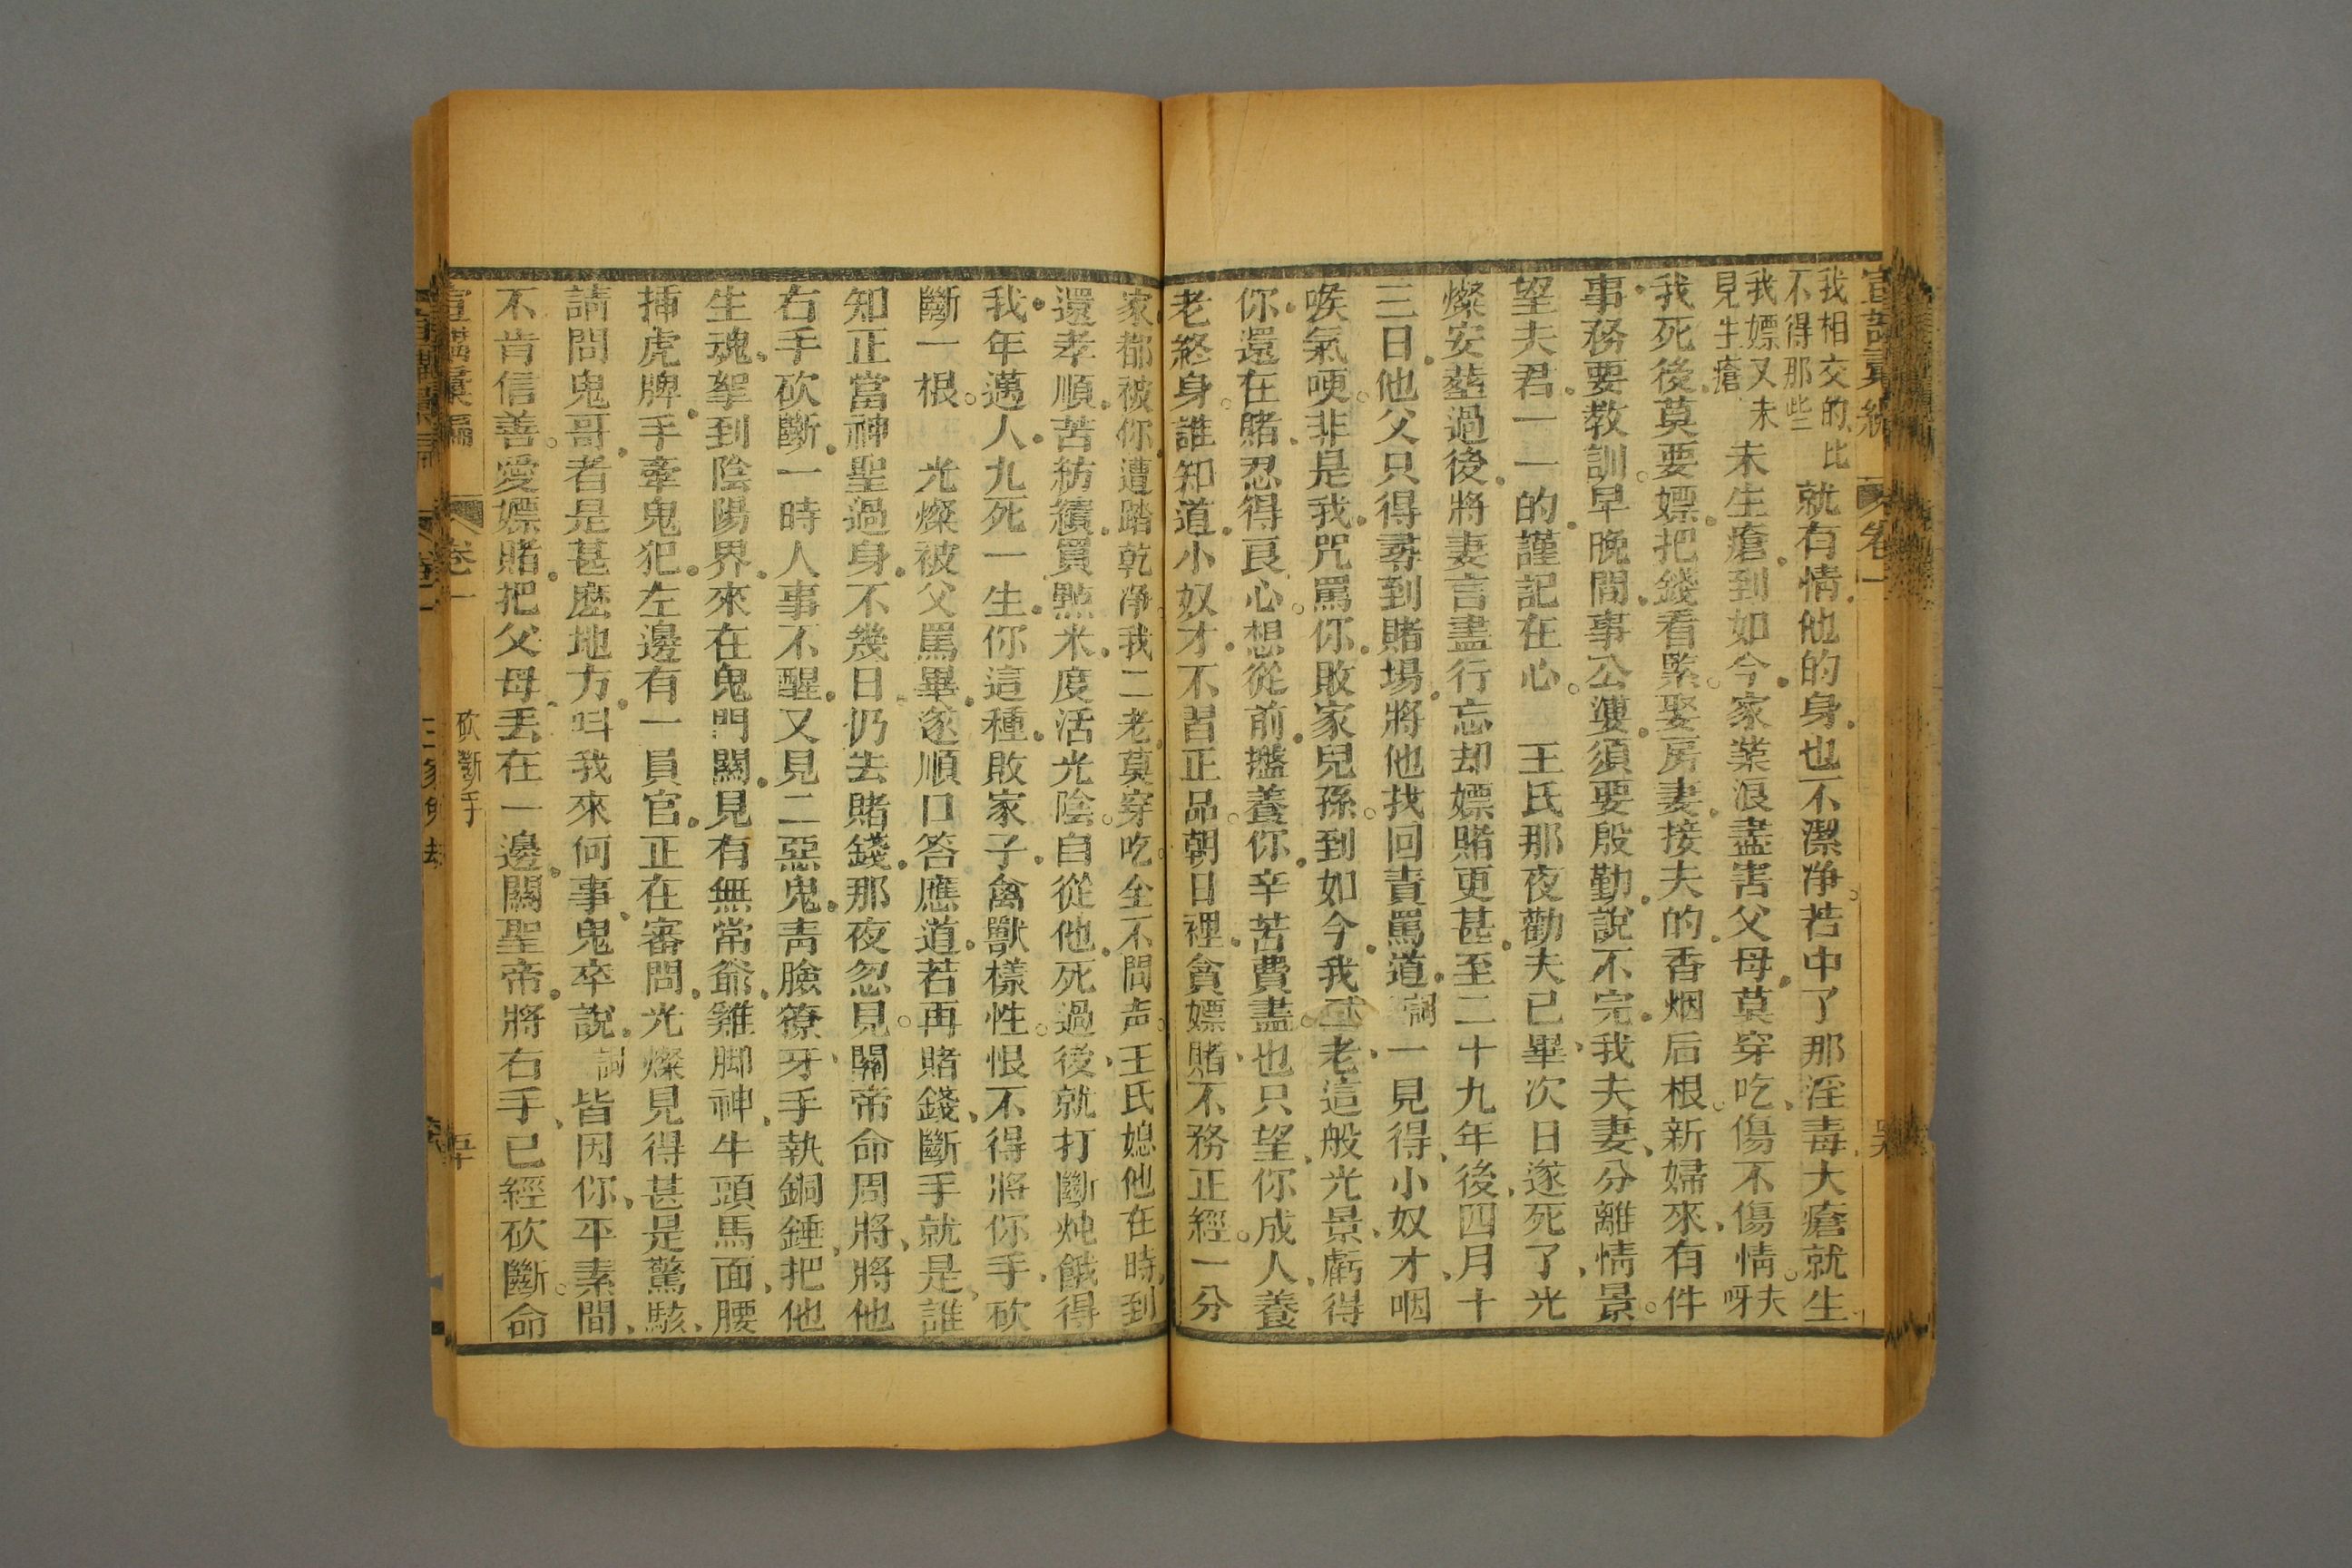 卷一
我相交的、比不得那些就有情他的身也不潔净。若中了那淫毒大瘡就生
我嫖又未見生瘡未生瘡到如今家業浪盡害父母莫穿吃、傷不傷情。夫呀
我死後莫要嫖把錢看緊。娶房妻接夫的香烟后根。新婦來、有件
事務要教訓。早晚間事公婆須要殷勤說不完我夫妻、分離情景。
望夫君一一的謹記在心。　王氏那夜勸夫已畢、次日遂死了、光
燦安葬過後、將妻言盡行忘却嫖賭更甚至二十九年後、四月十
三日、他父只得尋到賭場將他找回責罵道、詞一見得、小奴才、咽
喉氣哽。非是我咒罵你敗家兒孫。到如今我老、這般光景、虧得
你還在賭、忍得良心。想從前盤養你辛苦費盡。也只望、你成人、養
老終身。誰知道小奴才不習正品。朝日裡貪嫖賭、不務正經。一分
家都被你遭踏乾净。我二老莫穿吃全不問声。王氏媳他在時、到
還孝順苦紡績買點米度活光陰。自從他死過後、就打斷炖餓得
我年邁人九死一生你這種敗家子禽獸樣性。恨不得將你手、砍
斷一根。　光燦被父罵畢遂順口答應道若再賭錢、斷手就是、誰
知正當神聖過身不幾日仍去賭錢那夜忽見。關帝命周將、將他
右手砍斷一時人事不醒又見二惡鬼青臉獠牙、手執銅錘、把他
生魂、拏到陰陽界來在鬼門關見有無常爺、雞脚神、牛頭馬面、腰
揷虎牌手牽鬼犯左邊有一員官正在審問光燦見得甚是驚駭、
請問鬼哥者是甚麽地方叫我來何事鬼卒說、詞皆因你、平素間、
不肯信善。愛嫖賭把父母丟在一邊關聖帝將右手、已經砍斷。命
宣講彙編　卷一　砍斷手　五十